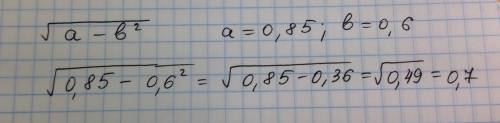 √(a − в²) a = 0,85; в = 0,6
√(0,85 − 0,6²) = √(0,85 − 0,36) = √0,49 = 0,7